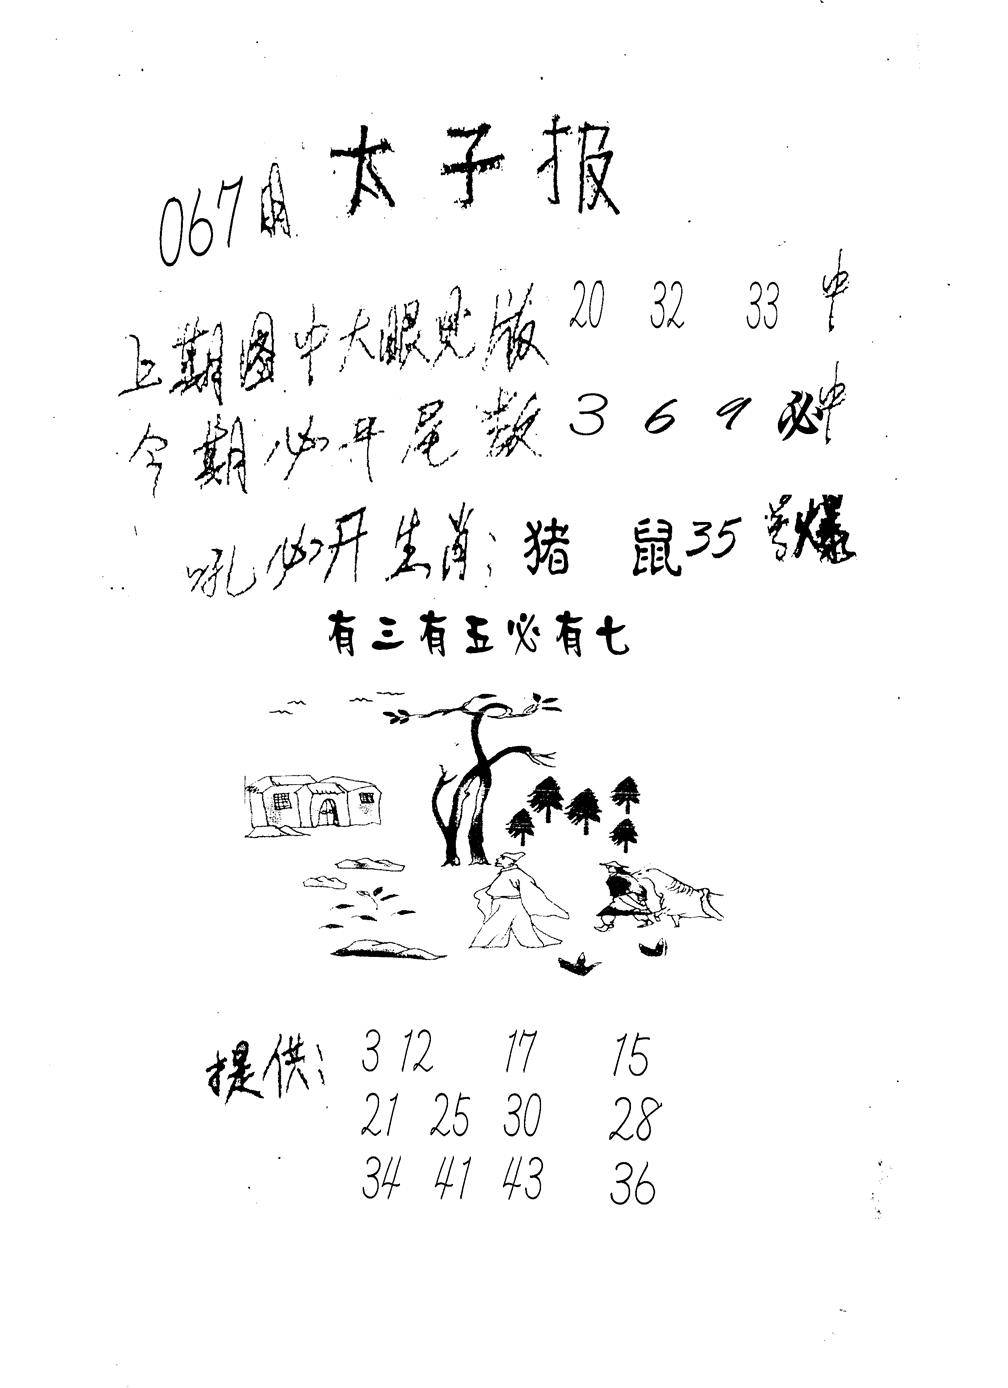 太子报
067期
上期图中大眼见版 20 32 33 中
今期必开尾数 3 6 9 必中
必开生肖: 猪 鼠 35 号爆
有三有五必有七
提供: 3 12 17 15
21 25 30 28
34 41 43 36